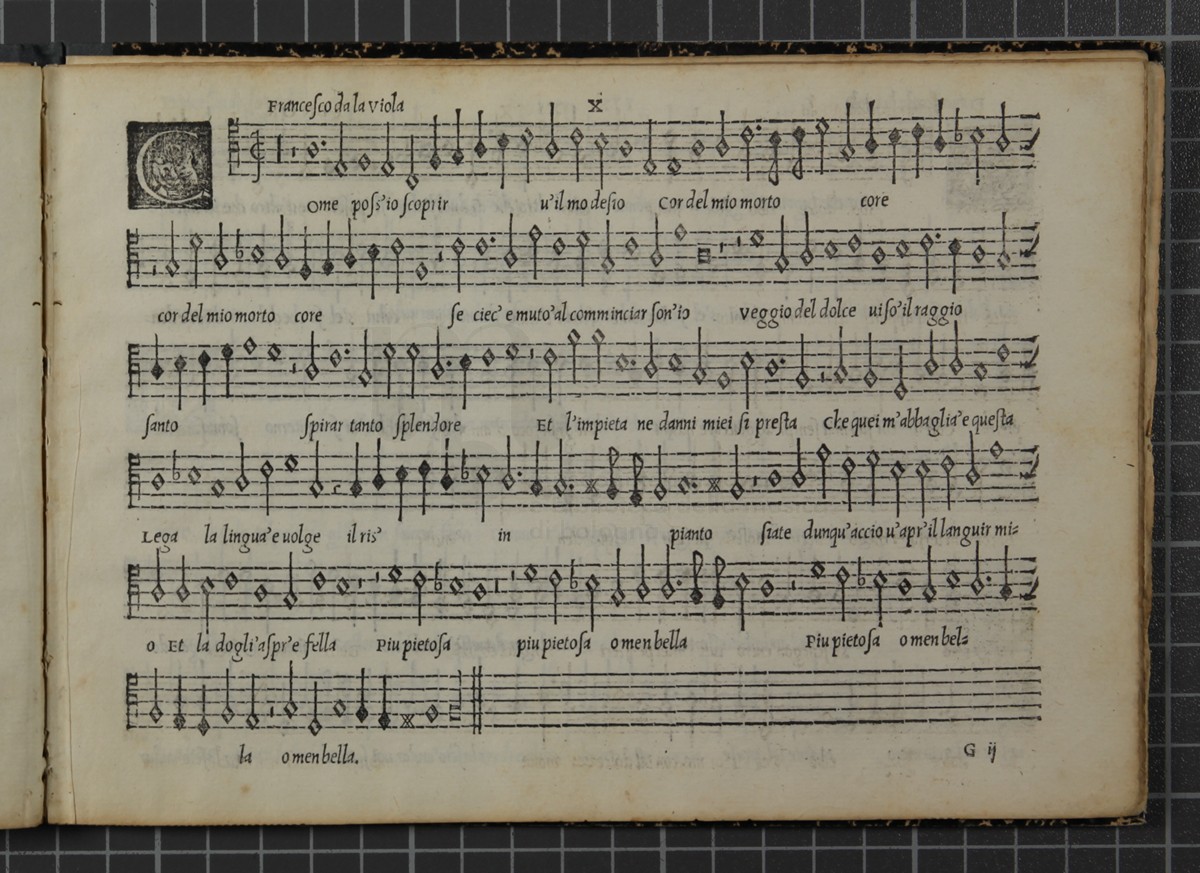 Francesco da la viola X
COme poss'io scoprir u'il mo desio Cor del mio morto core
cor del mio morto core se ciec' e muto'al comminciar son'io veggio del dolce uiso'il raggio
santo spirar tanto splendore Et l'impieta ne danni miei si presta Che quei m'abbaglia'e questa
Lega la lingua'e uolge il ris' in pianto siate dunqu'accio u'apr'il languir mi=
o Et la dogli'aspr'e fella Piu pietosa piu pietosa o men bella Piu pietosa o men bel=
la o men bella.
G ij